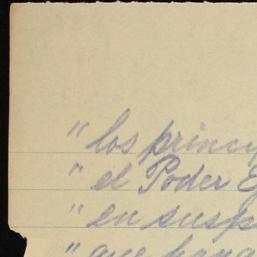 " los princi
" el Poder E
" en susp
" que pong